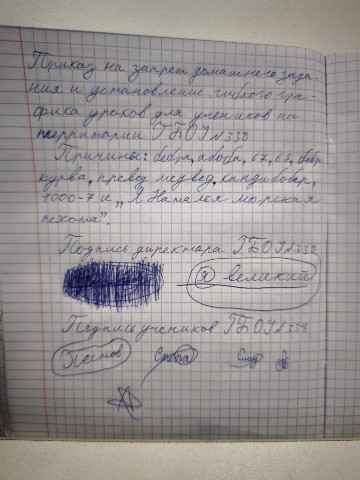 Приказ на запрет домашнего зада-
ния и установление гибкого гра-
фика уроков для учеников на
территории ГБОУ№338
Причины: бебра, абоба, 67, 69, бобр
курва, превед медвед, кандибобер,
1000-7 и „Я Наталья морская
пехота".
Подпись директора ГБОУ№338
Я великий
Подпись учеников ГБОУ№338